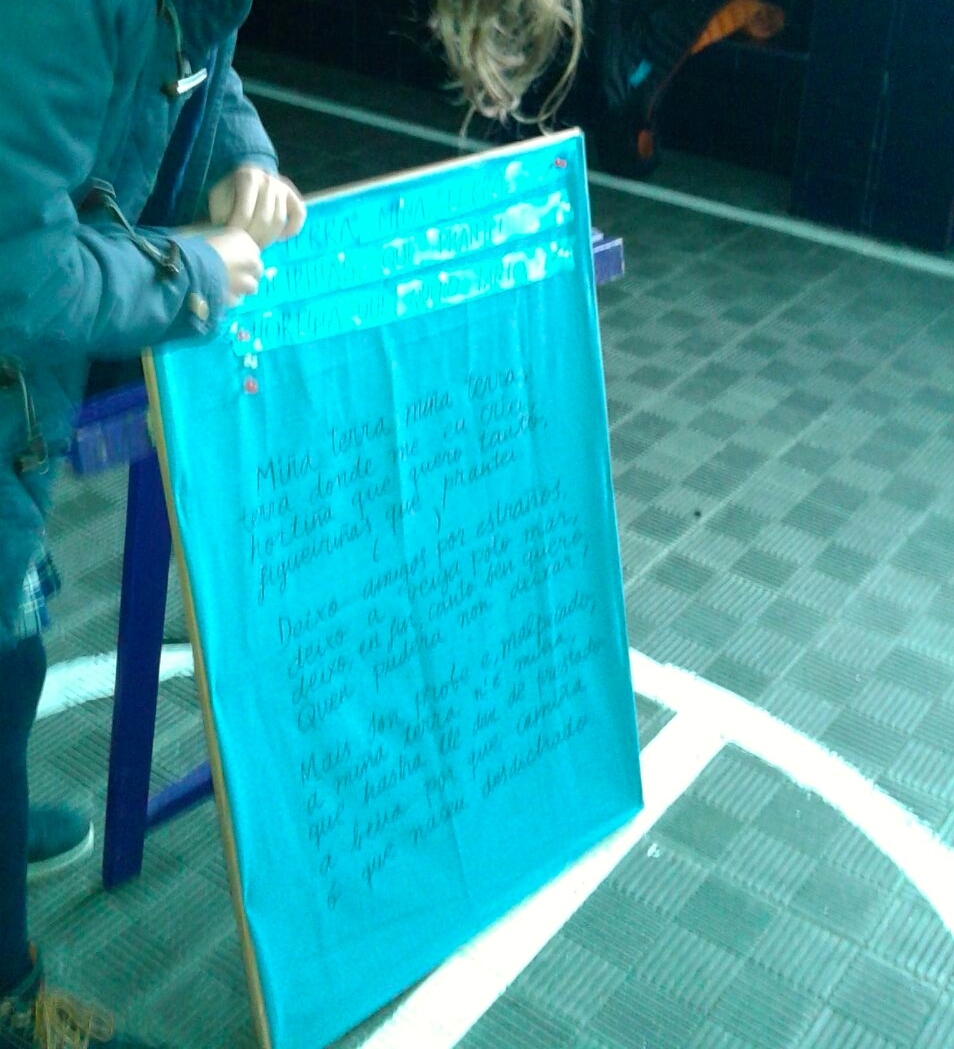 TERRA, MIÑA
QUE PRANTEI
HORTIÑA QUE QUERO TANTO
Miña terra, miña terra,
terra donde me eu criei,
hortiña que quero tanto,
figueiriñas que prantei
Deixo amigos por estraños,
deixo a veiga polo mar,
deixo, en fin, canto ben quero,
Quen pudera non deixar!
Mais son probe e, malpecado,
a miña terra n'é miña,
que hastra lle dan de prestado
a beira por que camiña
ó que naceu desdichado